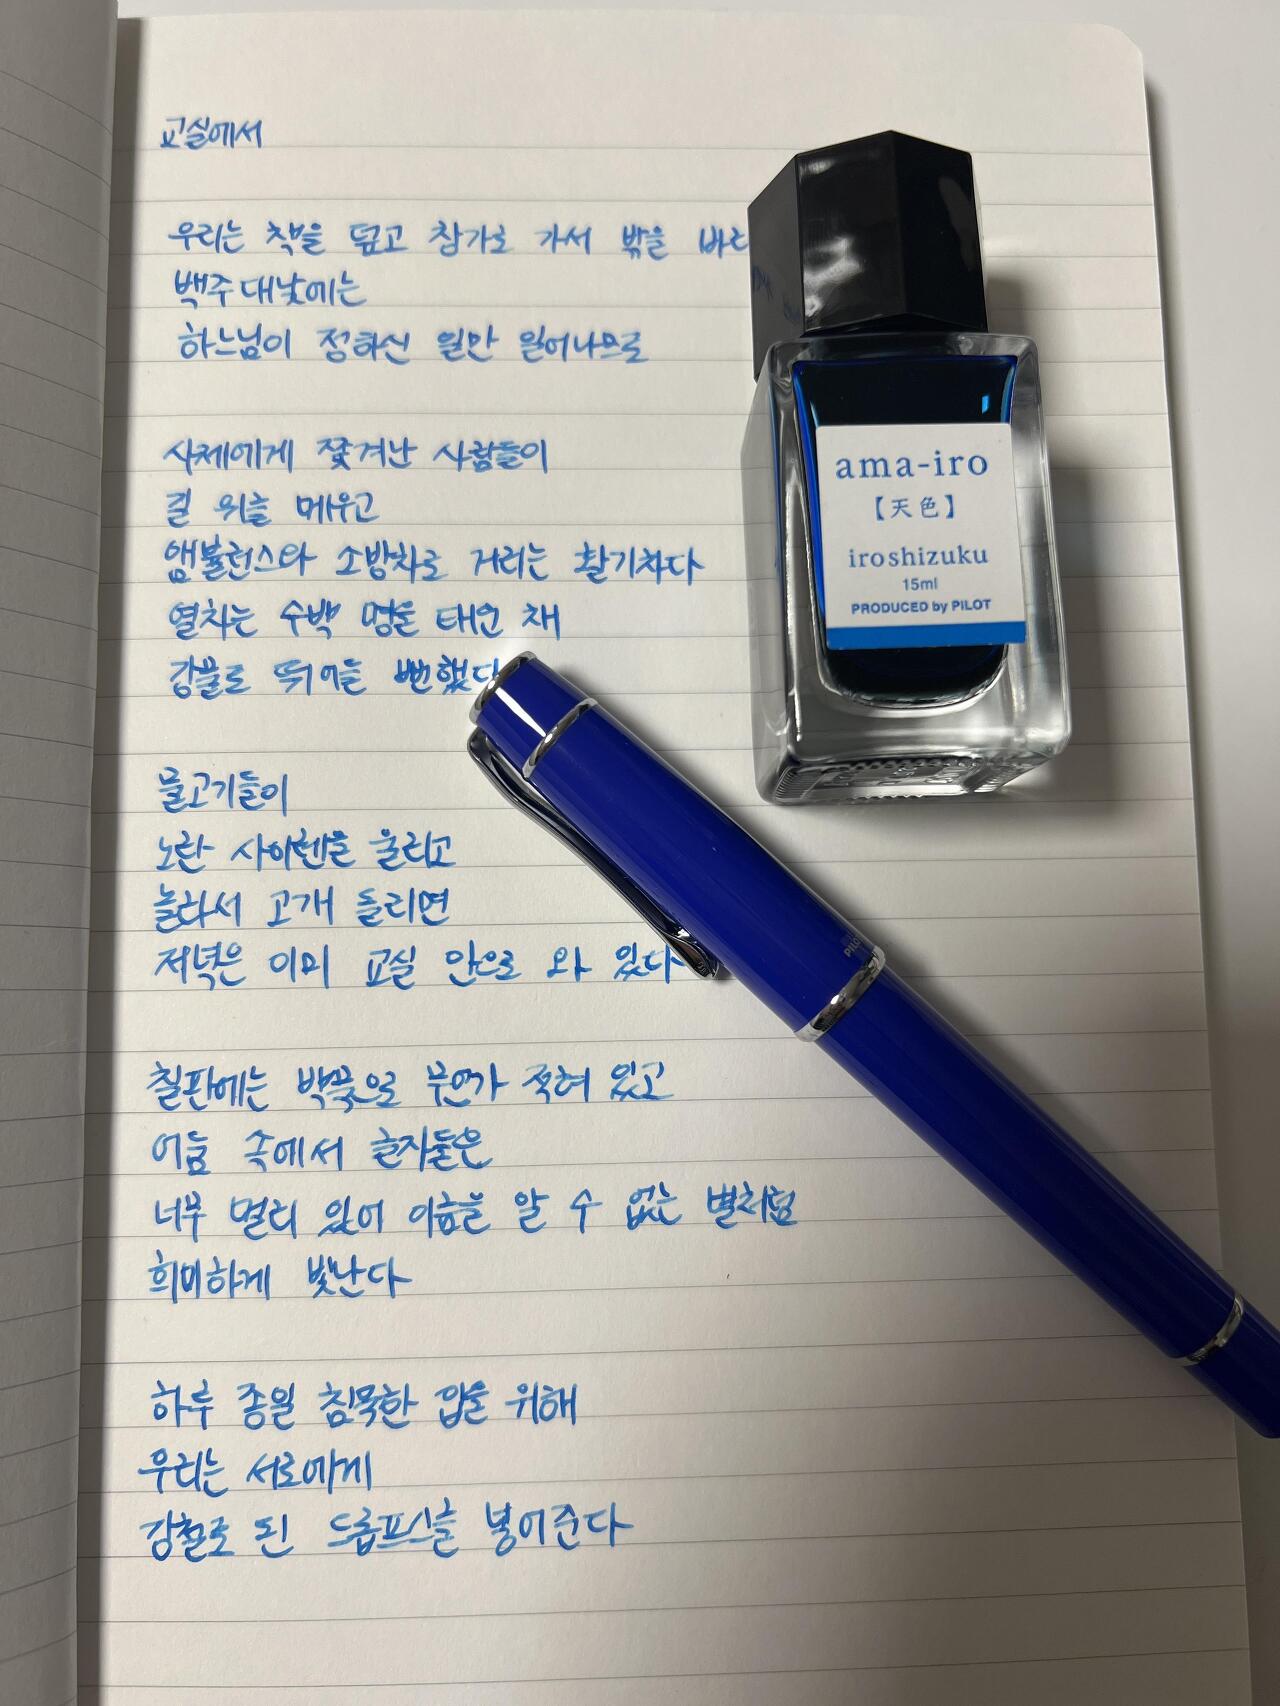 교실에서
우리는 책을 덮고 창가로 가서 밖을
백주대낮에는
하느님이 정하신 일만 일어나므로
사제에게 쫓겨난 사람들이
길 위를 메우고
앰뷸런스와 소방차로 거리는 활기차다
열차는 수백 명을 태운 채
강물로 뛰어들 뻔했다
물고기들이
노란 사이렌을 울리고
놀라서 고개 돌리면
저녁은 이미 교실 안으로 와 있다
칠판에는 백묵으로 무언가 적혀 있고
어둠 속에서 글자들은
너무 멀리 있어 이름을 알 수 없는 별처럼
희미하게 빛난다
하루 종일 침묵한 입을 위해
우리는 서로에게
강철로 된 드롭프스를 넣어준다
ama-iro
【天色】
iroshizuku
15ml
PRODUCED by PILOT